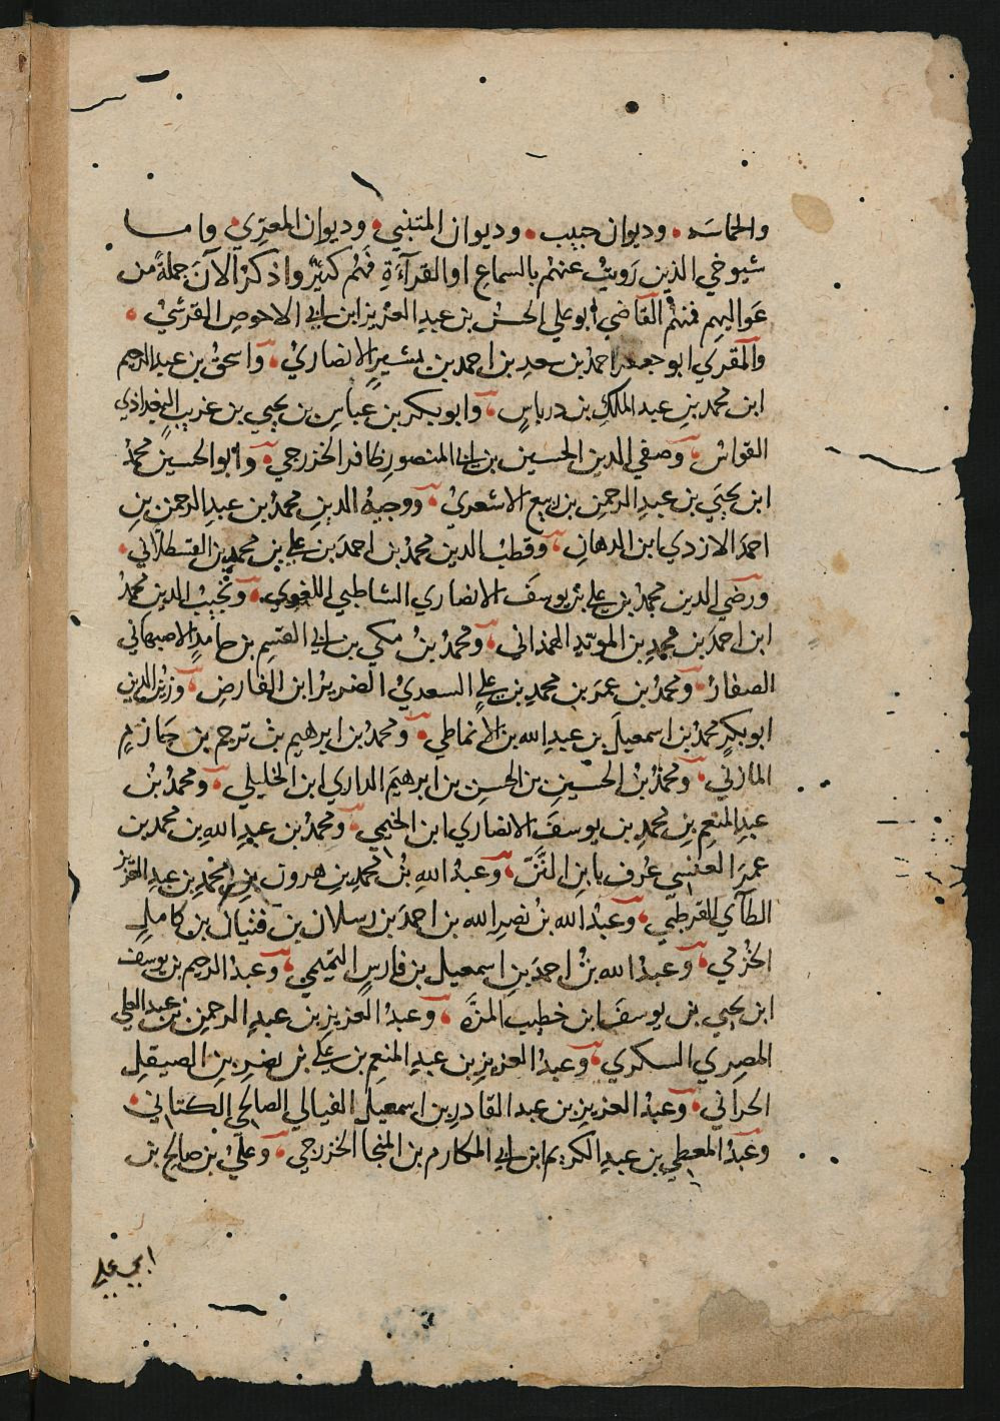 والحماسه • وديوان حبيب • وديوان المتنبي • وديوان المعرّي • واما
شيوخي الذين رَويتُ عنهُم بالسماع او القرآءَةِ فَهُم كثيرٌ واذكرُ الآنَ جملةً من
عَواليهِم فمنهُم القاضي أبو علي الحسنُ بن عبدِ العزيز ابن ابي الاحوصِ القرشيُ •
والمقري ابو جعفر احمدُ بن سعدِ بن احمد بن بشيرٍ الانصاريُ • واسحقُ بن عبد الرحيم
ابن محمد بنِ عبد الملكِ بن درباسٍ • وابو بكر بن عباسِ بن يحيى بن غريبٍ البغداذي
القواسُ • وصفي الدين الحسين بن ابي المنصورِ ظافر الخزرجي • وأبو الحسين محمدُ
ابن يحيَى بن عبدِ الرحمن بن ربيع الاشعريُ • ووجيهُ الدينِ محمدُ بن عبدِ الرحمن بنِ
احمدَ الازدي ابن الدهانِ • وقطبُ الدين محمدُ بن احمدَ بن علي بن محمدِ بن القسطلاني •
ورضي الدين محمدُ بن علي بن يوسفَ الانصاري الشاطبي اللغوي • ونجيبُ الدين محمدُ
ابن احمدَ بن محمدِ بن المويّدِ الهمذاني • ومحمدُ بنُ مكي بن ابي القسِم بن حامدٍ الاصبهاني
الصفارُ • ومحمدُ بن عمرَ بن محمدِ بن عليٍ السعديُ الضريرُ ابن الفارضِ • وزينُ الدين
ابو بكرٍ محمدُ بن اسمعيلَ بن عبدِ الله بن الانماطي • ومحمدُ بن ابرهيم بن ترجم بن حازمٍ
المازني • ومحمدُ بنُ الحسينِ بن الحسن بن ابرهيمَ الداري ابن الخليلي • ومحمدُ بنُ
عبدِ المنعِم بنِ محمدِ بن يوسفَ الانصاري ابن الخيمي • ومحمدُ بن عبدِ اللهِ بن محمد بن
عمرَ العنسي عُرف بابنِ النَّنّ • وعبدُ اللهِ بنُ محمدِ بن هرون بن محمدِ بن عبدِ العزيز
الطآي القرطبي • وعبدُ الله بنُ نصرِ الله بن احمدَ بن رسلان بن فتيان بن كاملٍ
الخُزمي • وعبدُ الله بنُ احمدَ بنِ اسمعيل بن فارسٍ التميمي • وعبدُ الرحيم بن يوسف
ابن يحيي بن يوسفَ ابن خطيب المزَّه • وعبدُ العزيزِ بن عبدِ الرحمن بن عبد العلي
المصري السكري • وعبدُ العزيزِ بن عبدِ المنعِم بن علي بن نصرِ بن الصيقلِ
الحراني • وعبدُ العزيزِ بن عبد القادرِ بن اسمعيل الفيالي الصالحي الكتاني •
وعبدُ المعطي بن عبدِ الكريم ابن ابي المكارم بن المنجا الخزرجي • وعليُ بن صالحِ بن
ابي علي